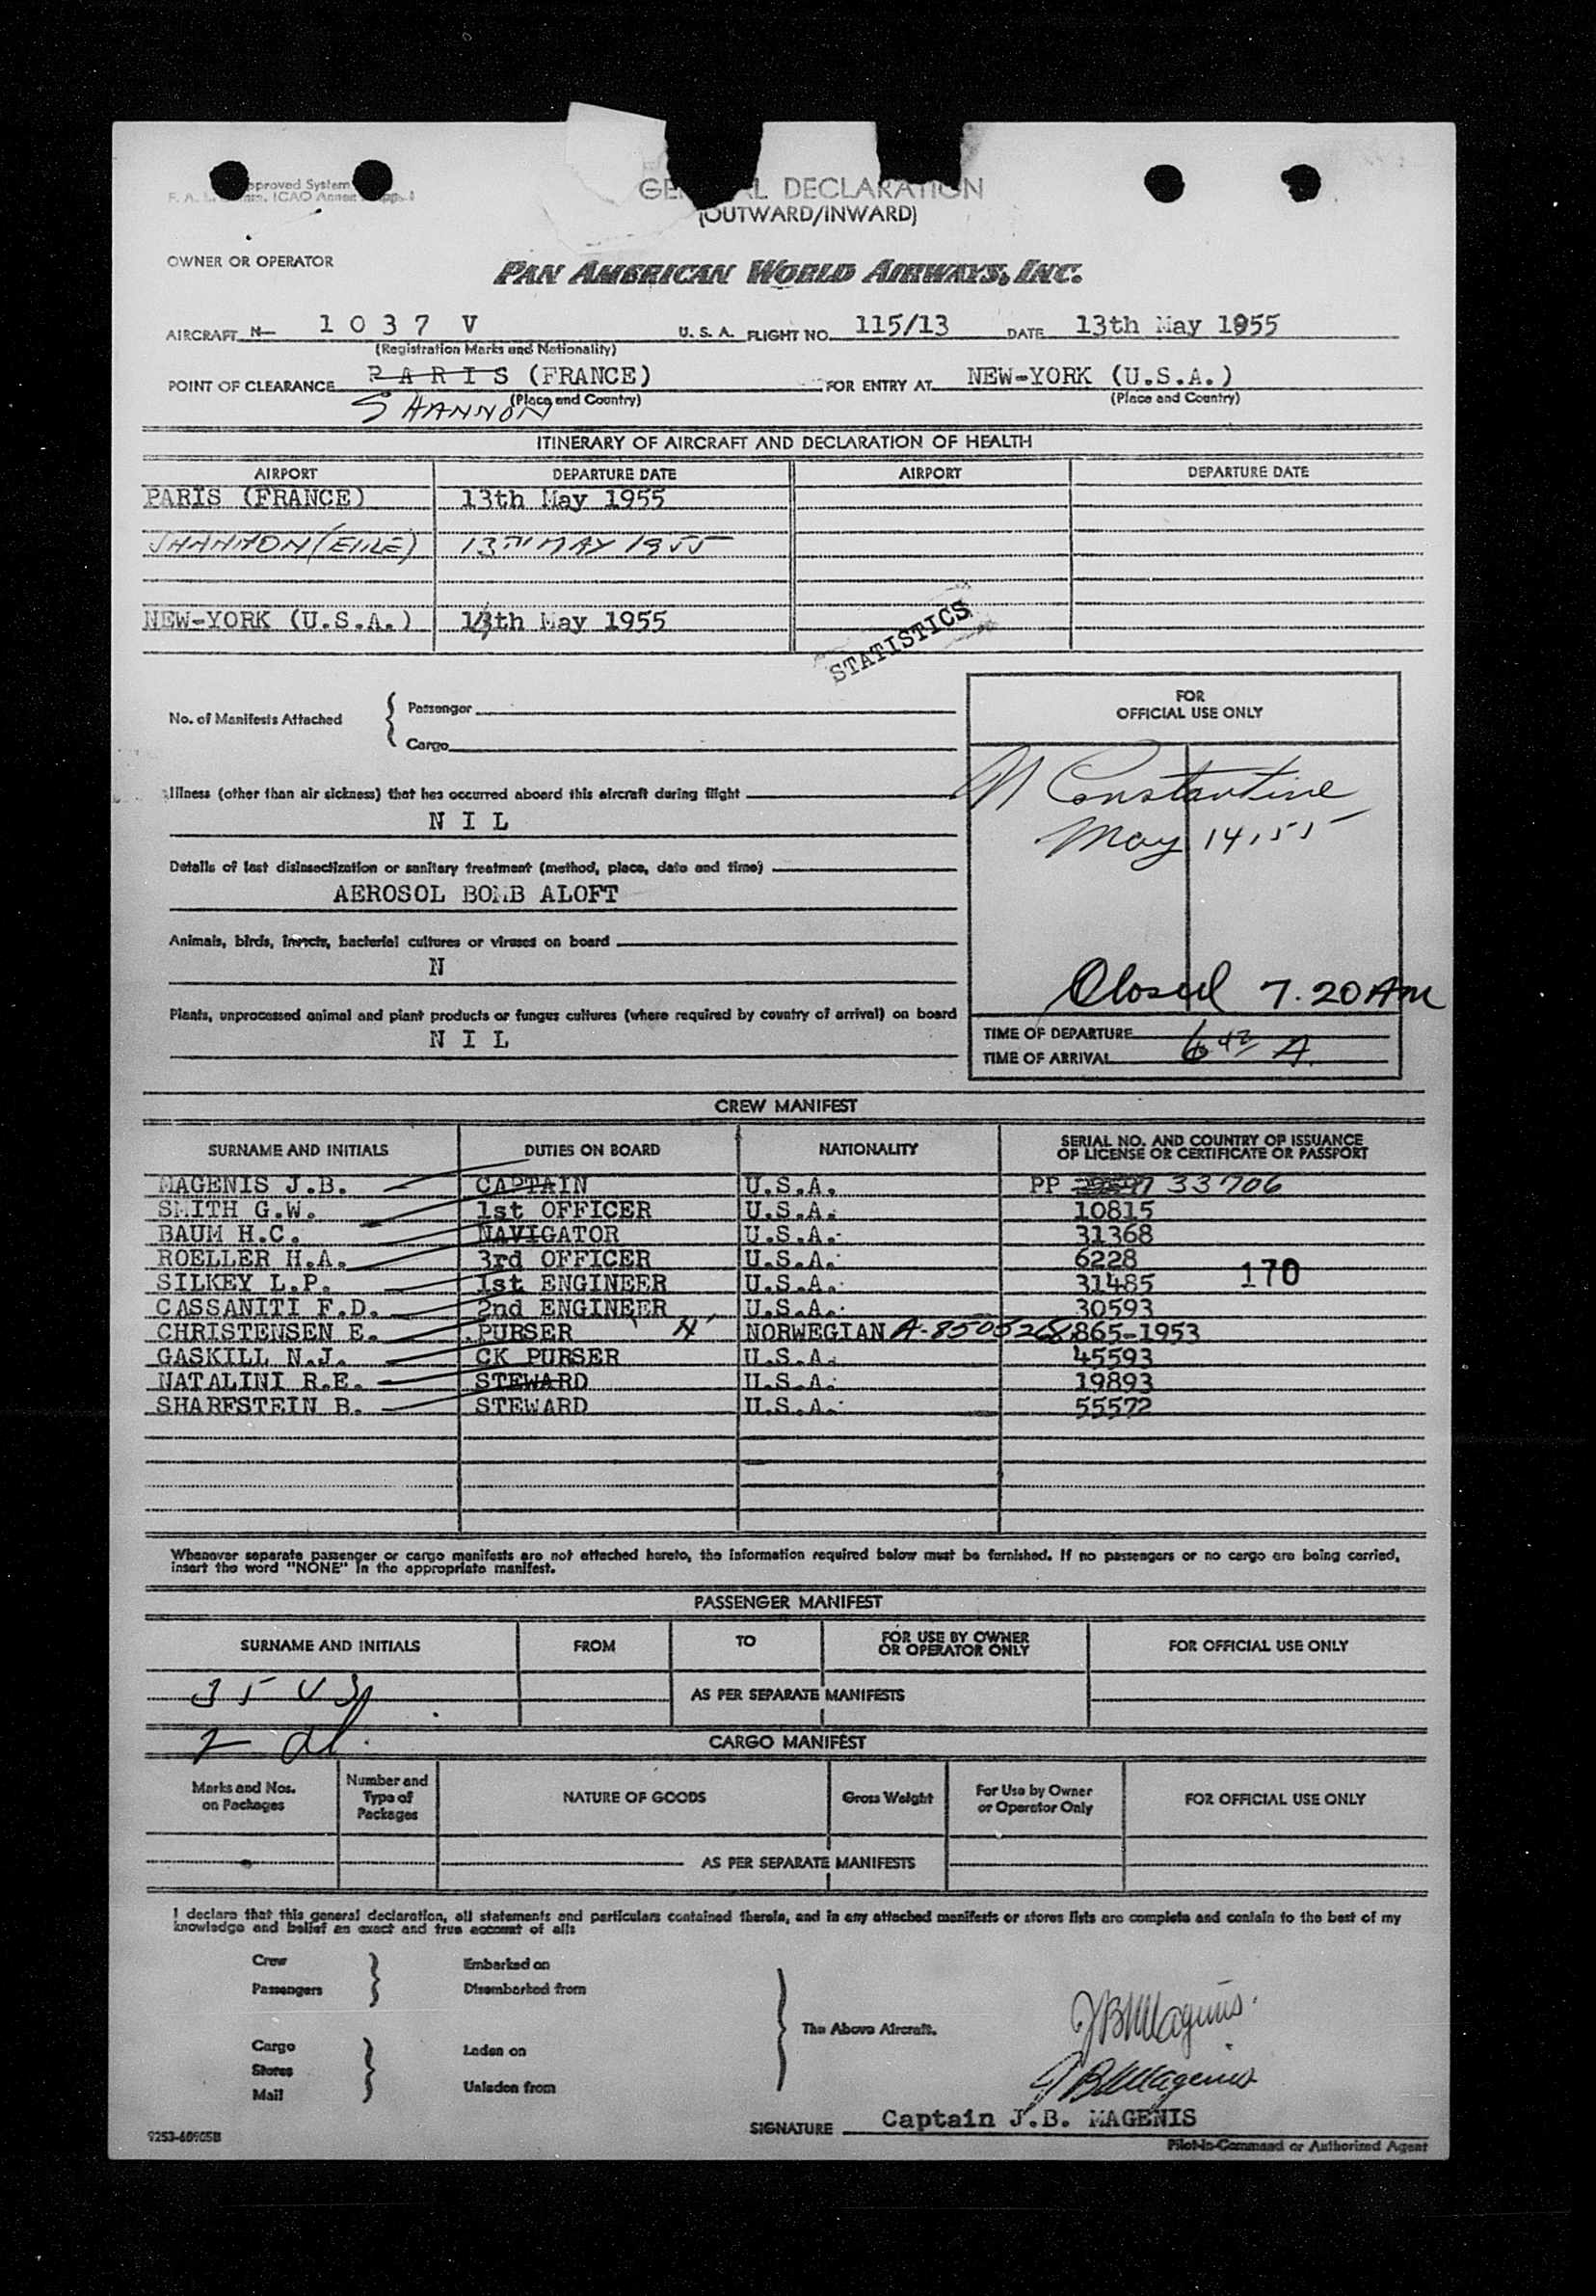 GENERAL DECLARATION
(OUTWARD/INWARD)
OWNER OR OPERATOR
PAN AMERICAN WORLD AIRWAYS, INC.
AIRCRAFT N- 1 0 3 7 V U. S. A. FLIGHT NO. 115/13 DATE 13th May 1955
(Registration Marks and Nationality)
POINT OF CLEARANCE P A R I S (FRANCE) FOR ENTRY AT NEW-YORK (U.S.A.)
(Place and Country) (Place and Country)
SHANNON
ITINERARY OF AIRCRAFT AND DECLARATION OF HEALTH
AIRPORT DEPARTURE DATE AIRPORT DEPARTURE DATE
PARIS (FRANCE) 13th May 1955
SHANNON (EIRE) 13TH MAY 1955
NEW-YORK (U.S.A.) 14th May 1955
STATISTICS
No. of Manifests Attached
Passenger
Cargo
FOR
OFFICIAL USE ONLY
Illness (other than air sickness) that has occurred aboard this aircraft during flight
N I L
Constantine
May 14, 55
Details of last disinsectization or sanitary treatment (method, place, date and time)
AEROSOL BOMB ALOFT
Animals, birds, insects, bacterial cultures or viruses on board
N
Closed 7.20 AM
Plants, unprocessed animal and plant products or fungus cultures (where required by country of arrival) on board
N I L
TIME OF DEPARTURE
TIME OF ARRIVAL 6 42 A.
CREW MANIFEST
SURNAME AND INITIALS DUTIES ON BOARD NATIONALITY SERIAL NO. AND COUNTRY OF ISSUANCE
OF LICENSE OR CERTIFICATE OR PASSPORT
MAGENIS J.B. CAPTAIN U.S.A. PP 33706
SMITH G.W. 1st OFFICER U.S.A. 10815
BAUM H.C. NAVIGATOR U.S.A. 31368
ROELLER H.A. 3rd OFFICER U.S.A. 6228
SILKEY L.P. 1st ENGINEER U.S.A. 31485 170
CASSANITI F.D. 2nd ENGINEER U.S.A. 30593
CHRISTENSEN E. PURSER NORWEGIAN A-8505268 865-1953
GASKILL N.J. CK PURSER U.S.A. 45593
NATALINI R.E. STEWARD U.S.A. 19893
SHARFSTEIN B. STEWARD U.S.A. 55572
Whenever separate passenger or cargo manifests are not attached hereto, the information required below must be furnished. If no passengers or no cargo are being carried,
insert the word "NONE" in the appropriate manifest.
PASSENGER MANIFEST
SURNAME AND INITIALS FROM TO FOR USE BY OWNER
OR OPERATOR ONLY FOR OFFICIAL USE ONLY
35
AS PER SEPARATE MANIFESTS
2 al.
CARGO MANIFEST
Marks and Nos.
on Packages
Number and
Type of
Packages
NATURE OF GOODS
Gross Weight
For Use by Owner
or Operator Only
FOR OFFICIAL USE ONLY
AS PER SEPARATE MANIFESTS
I declare that this general declaration, all statements and particulars contained therein, and in any attached manifests or stores lists are complete and contain to the best of my
knowledge and belief an exact and true account of all:
Crew Embarked on
Passengers Disembarked from
The Above Aircraft.
Cargo Laden on
Stores
Mail Unladen from
JB Magenis
JB Magenis
SIGNATURE Captain J.B. MAGENIS
Pilot-in-Command or Authorized Agent
9253-60905B